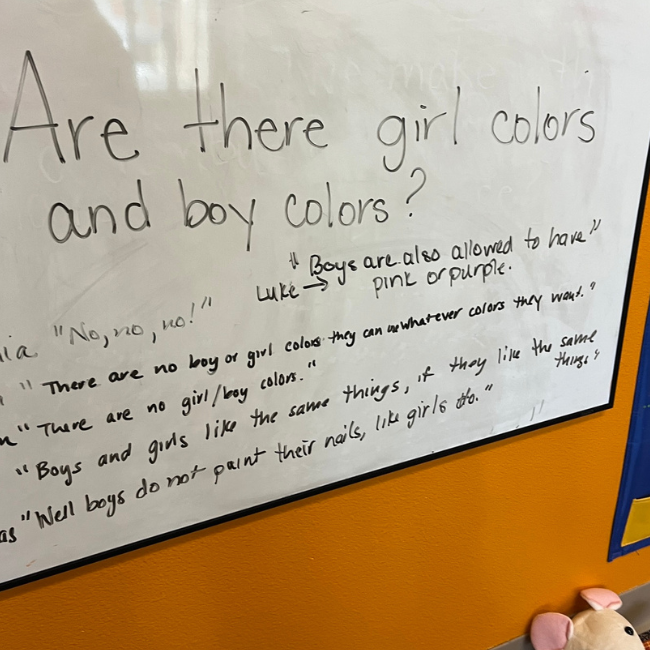 Are there girl colors
and boy colors?
" Boys are also allowed to have "
Luke → pink or purple.
ia "No, no, no!"
" There are no boy or girl colors they can use whatever colors they want."
n " There are no girl/boy colors."
" Boys and girls like the same things, if they like the same
things"
as "Well boys do not paint their nails, like girls do."